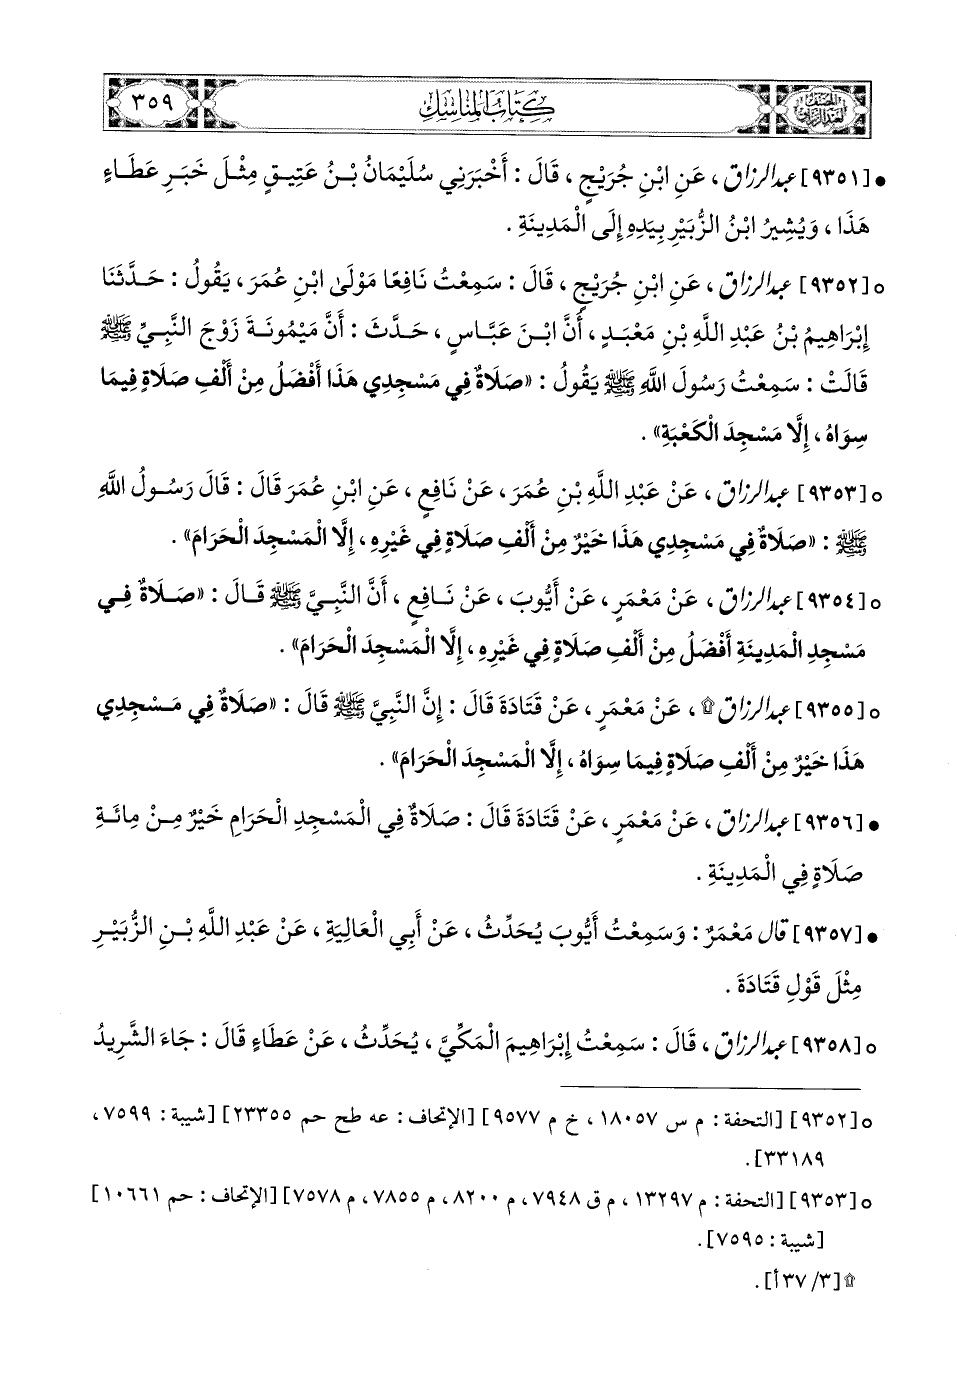 المصنف لعبد الرزاق
كتاب المناسك
٣٥٩
• [٩٣٥١] عبد الرزاق، عَنِ ابْنِ جُرَيْجٍ، قَالَ: أَخْبَرَنِي سُلَيْمَانُ بْنُ عَتِيقٍ مِثْلَ خَبَرِ عَطَاءٍ
هَذَا، وَيُشِيرُ ابْنُ الزُّبَيْرِ بِيَدِهِ إِلَى الْمَدِينَةِ.
o [٩٣٥٢] عبد الرزاق، عَنِ ابْنِ جُرَيْجٍ، قَالَ: سَمِعْتُ نَافِعًا مَوْلَى ابْنِ عُمَرَ، يَقُولُ: حَدَّثَنَا
إِبْرَاهِيمُ بْنُ عَبْدِ اللَّهِ بْنِ مَعْبَدٍ، أَنَّ ابْنَ عَبَّاسٍ، حَدَّثَ: أَنَّ مَيْمُونَةَ زَوْجَ النَّبِيِّ ﷺ
قَالَتْ: سَمِعْتُ رَسُولَ اللَّهِ ﷺ يَقُولُ: «صَلَاةٌ فِي مَسْجِدِي هَذَا أَفْضَلُ مِنْ أَلْفِ صَلَاةٍ فِيمَا
سِوَاهُ، إِلَّا مَسْجِدَ الْكَعْبَةِ».
o [٩٣٥٣] عبد الرزاق، عَنْ عَبْدِ اللَّهِ بْنِ عُمَرَ، عَنْ نَافِعٍ، عَنِ ابْنِ عُمَرَ قَالَ: قَالَ رَسُولُ اللَّهِ
ﷺ: «صَلَاةٌ فِي مَسْجِدِي هَذَا خَيْرٌ مِنْ أَلْفِ صَلَاةٍ فِي غَيْرِهِ، إِلَّا الْمَسْجِدَ الْحَرَامَ».
o [٩٣٥٤] عبد الرزاق، عَنْ مَعْمَرٍ، عَنْ أَيُّوبَ، عَنْ نَافِعٍ، أَنَّ النَّبِيَّ ﷺ قَالَ: «صَلَاةٌ فِي
مَسْجِدِ الْمَدِينَةِ أَفْضَلُ مِنْ أَلْفِ صَلَاةٍ فِي غَيْرِهِ، إِلَّا الْمَسْجِدَ الْحَرَامَ».
o [٩٣٥٥] عبد الرزاق ۩، عَنْ مَعْمَرٍ، عَنْ قَتَادَةَ قَالَ: إِنَّ النَّبِيَّ ﷺ قَالَ: «صَلَاةٌ فِي مَسْجِدِي
هَذَا خَيْرٌ مِنْ أَلْفِ صَلَاةٍ فِيمَا سِوَاهُ، إِلَّا الْمَسْجِدَ الْحَرَامَ».
• [٩٣٥٦] عبد الرزاق، عَنْ مَعْمَرٍ، عَنْ قَتَادَةَ قَالَ: صَلَاةٌ فِي الْمَسْجِدِ الْحَرَامِ خَيْرٌ مِنْ مِائَةِ
صَلَاةٍ فِي الْمَدِينَةِ.
• [٩٣٥٧] قال مَعْمَرٌ: وَسَمِعْتُ أَيُّوبَ يُحَدِّثُ، عَنْ أَبِي الْعَالِيَةِ، عَنْ عَبْدِ اللَّهِ بْنِ الزُّبَيْرِ
مِثْلَ قَوْلِ قَتَادَةَ.
o [٩٣٥٨] عبد الرزاق، قَالَ: سَمِعْتُ إِبْرَاهِيمَ الْمَكِّيَّ، يُحَدِّثُ، عَنْ عَطَاءٍ قَالَ: جَاءَ الشَّرِيدُ
o [٩٣٥٢] [التحفة: م س ١٨٠٥٧، خ م ٩٥٧٧] [الإتحاف: عه طح حم ٢٣٣٥٥] [شيبة: ٧٥٩٩،
٣٣١٨٩].
o [٩٣٥٣] [التحفة: م ١٣٢٩٧، م ق ٧٩٤٨، م ٨٢٠٠، م ٧٨٥٥، م ٧٥٧٨] [الإتحاف: حم ١٠٦٦١]
[شيبة: ٧٥٩٥].
۩ [٣/ ٣٧ أ].